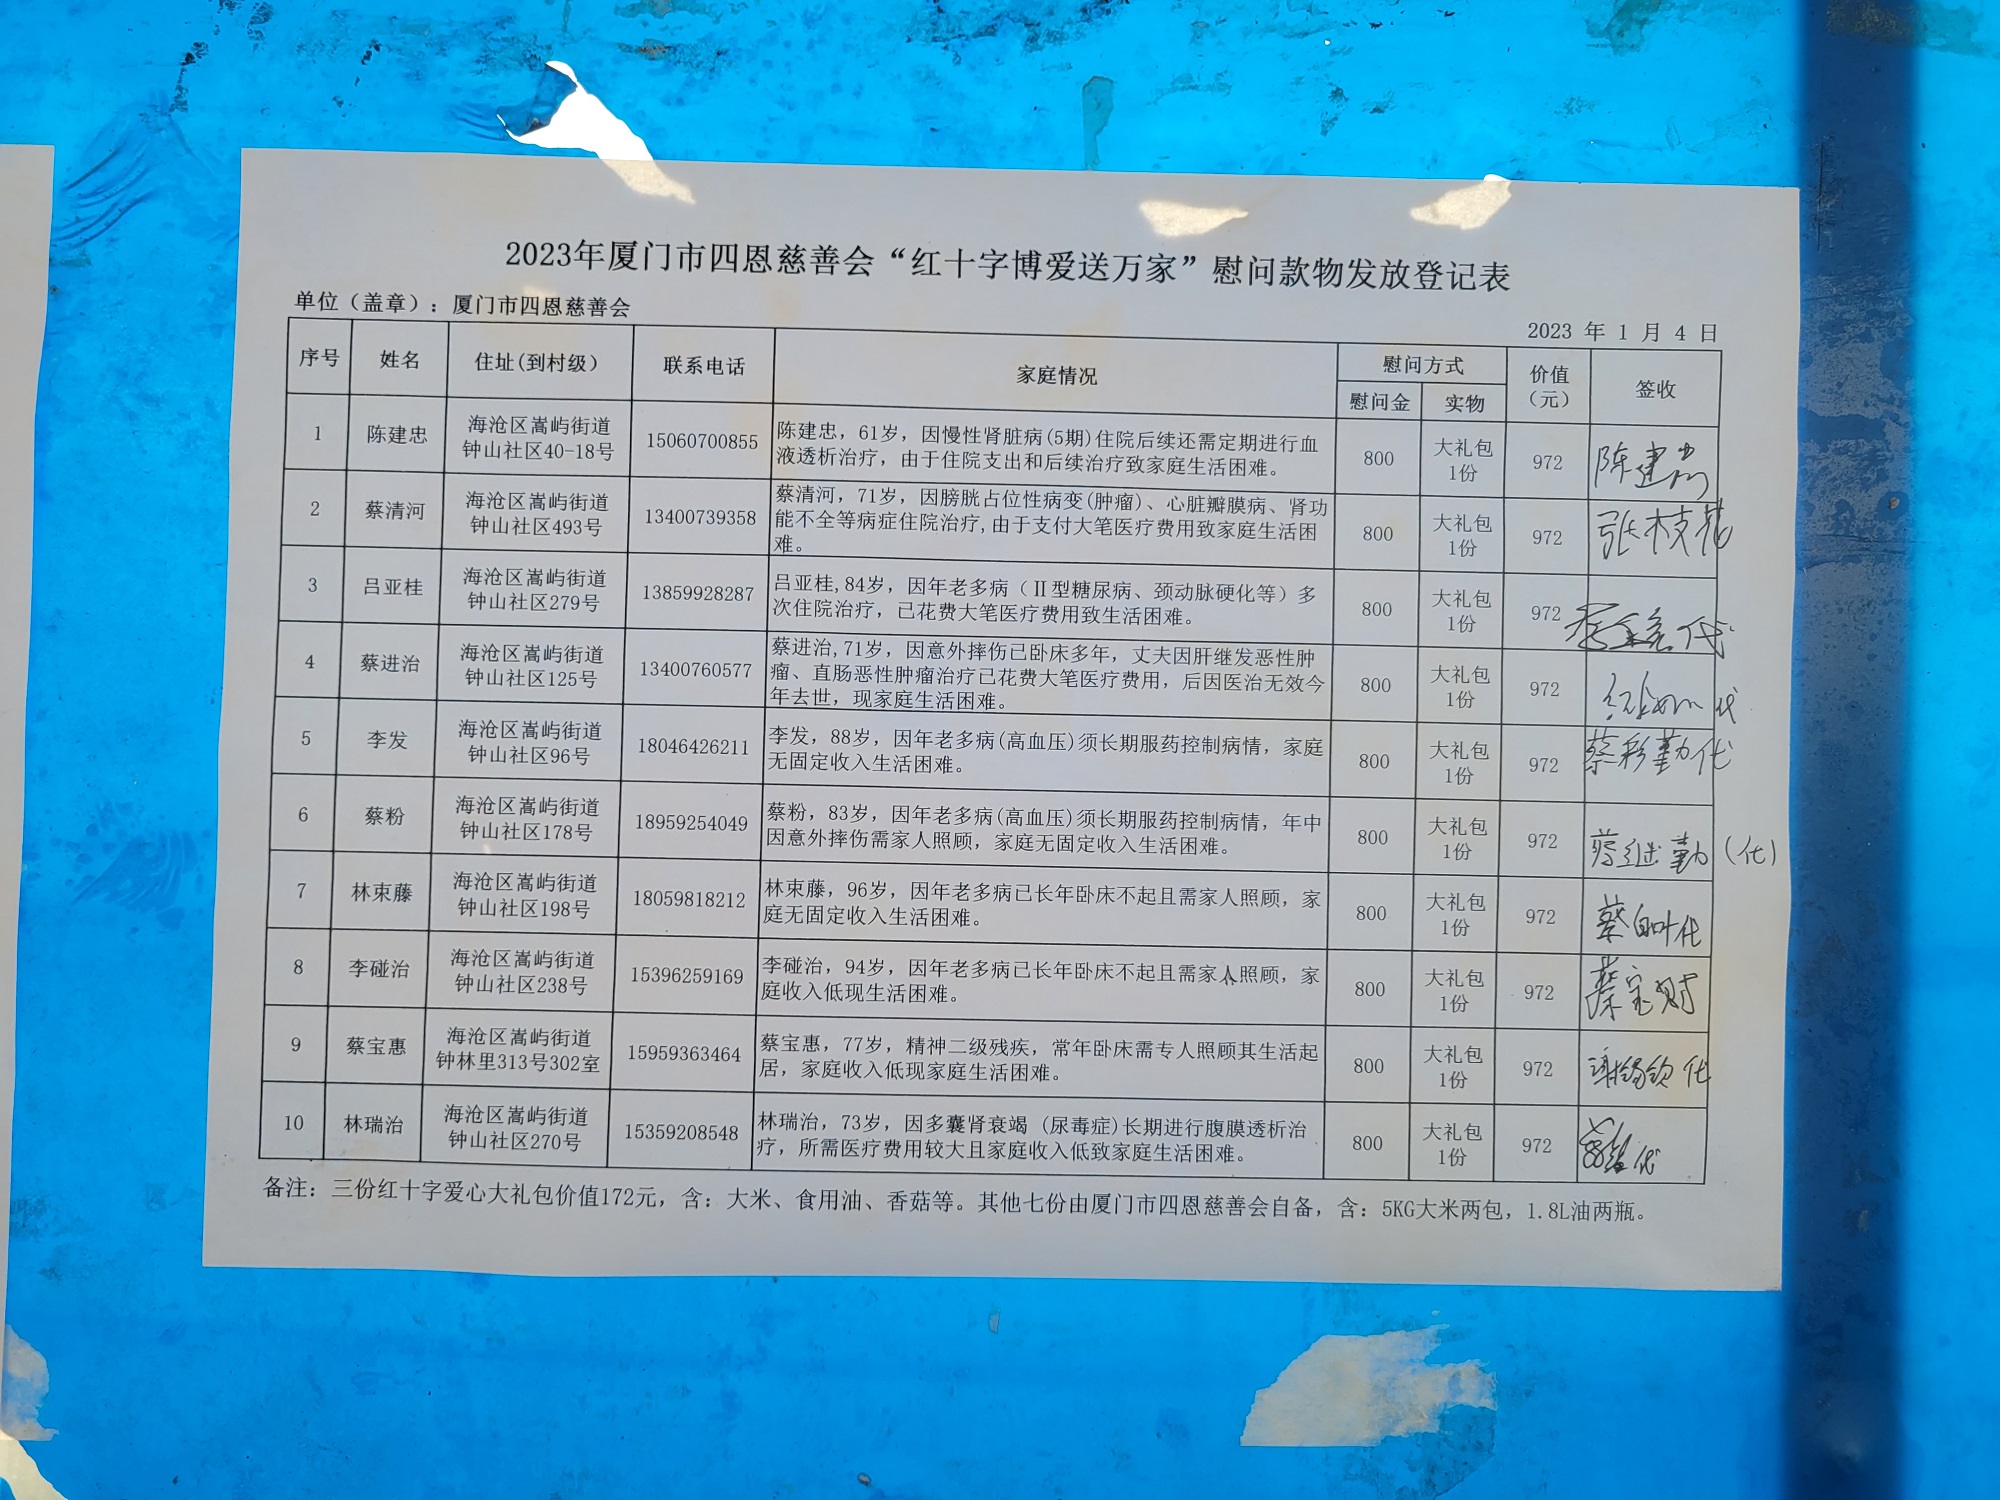 2023年厦门市四恩慈善会“红十字博爱送万家”慰问款物发放登记表
单位（盖章）：厦门市四恩慈善会
2023 年 1 月 4 日
序号 姓名 住址(到村级） 联系电话 家庭情况 慰问方式 价值（元） 签收
慰问金 实物
1 陈建忠 海沧区嵩屿街道钟山社区40-18号 15060700855 陈建忠，61岁，因慢性肾脏病(5期)住院后续还需定期进行血液透析治疗，由于住院支出和后续治疗致家庭生活困难。 800 大礼包1份 972 陈建忠
2 蔡清河 海沧区嵩屿街道钟山社区493号 13400739358 蔡清河，71岁，因膀胱占位性病变(肿瘤)、心脏瓣膜病、肾功能不全等病症住院治疗,由于支付大笔医疗费用致家庭生活困难。 800 大礼包1份 972 张枝花
3 吕亚桂 海沧区嵩屿街道钟山社区279号 13859928287 吕亚桂,84岁，因年老多病（Ⅱ型糖尿病、颈动脉硬化等）多次住院治疗，已花费大笔医疗费用致生活困难。 800 大礼包1份 972 代
4 蔡进治 海沧区嵩屿街道钟山社区125号 13400760577 蔡进治,71岁，因意外摔伤已卧床多年，丈夫因肝继发恶性肿瘤、直肠恶性肿瘤治疗已花费大笔医疗费用，后因医治无效今年去世，现家庭生活困难。 800 大礼包1份 972 代
5 李发 海沧区嵩屿街道钟山社区96号 18046426211 李发，88岁，因年老多病(高血压)须长期服药控制病情，家庭无固定收入生活困难。 800 大礼包1份 972 蔡彩勤代
6 蔡粉 海沧区嵩屿街道钟山社区178号 18959254049 蔡粉，83岁，因年老多病(高血压)须长期服药控制病情，年中因意外摔伤需家人照顾，家庭无固定收入生活困难。 800 大礼包1份 972 继勤（代）
7 林束藤 海沧区嵩屿街道钟山社区198号 18059818212 林束藤，96岁，因年老多病已长年卧床不起且需家人照顾，家庭无固定收入生活困难。 800 大礼包1份 972 蔡 代
8 李碰治 海沧区嵩屿街道钟山社区238号 15396259169 李碰治，94岁，因年老多病已长年卧床不起且需家人照顾，家庭收入低现生活困难。 800 大礼包1份 972 蔡宝财
9 蔡宝惠 海沧区嵩屿街道钟林里313号302室 15959363464 蔡宝惠，77岁，精神二级残疾，常年卧床需专人照顾其生活起居，家庭收入低现家庭生活困难。 800 大礼包1份 972 代
10 林瑞治 海沧区嵩屿街道钟山社区270号 15359208548 林瑞治，73岁，因多囊肾衰竭 (尿毒症)长期进行腹膜透析治疗，所需医疗费用较大且家庭收入低致家庭生活困难。 800 大礼包1份 972 代
备注：三份红十字爱心大礼包价值172元，含：大米、食用油、香菇等。其他七份由厦门市四恩慈善会自备，含：5KG大米两包，1.8L油两瓶。